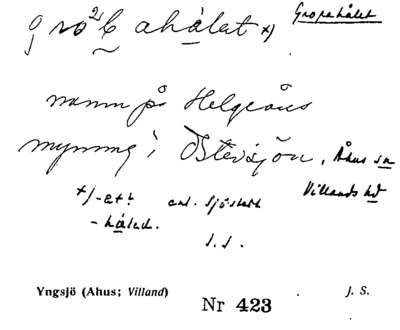 Gropahålet
gro²b̬ ahålet x)
namn på Helgeåns
mynning i Östersjön, Åhus sn
Villands hd
x) -et? enl. Sjöstedt
- håled.
J. S.
Yngsjö (Ahus; Villand) J. S.
Nr 423